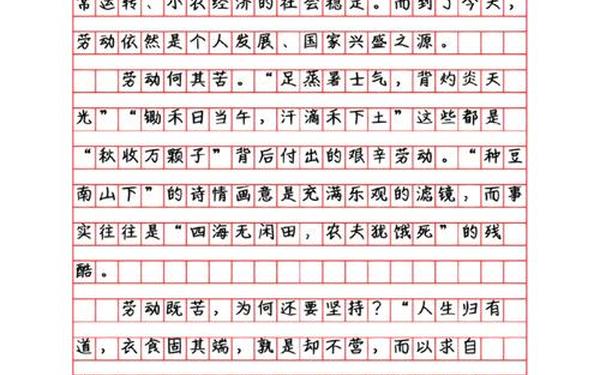 常运转、小农经济的社会稳定。而到了今天，
劳动依然是个人发展、国家兴盛之源。
劳动何其苦。“足蒸暑士气，背灼炎天
光”“锄禾日当午，汗滴禾下土”这些都是
“秋收万颗子”背后付出的艰辛劳动。“种豆
南山下”的诗情画意是充满乐观的滤镜，而事
实往往是“四海无闲田，农夫犹饿死”的残
酷。
劳动既苦，为何还要坚持？“人生归有
道，衣食固其端，孰是却不营，而以求自